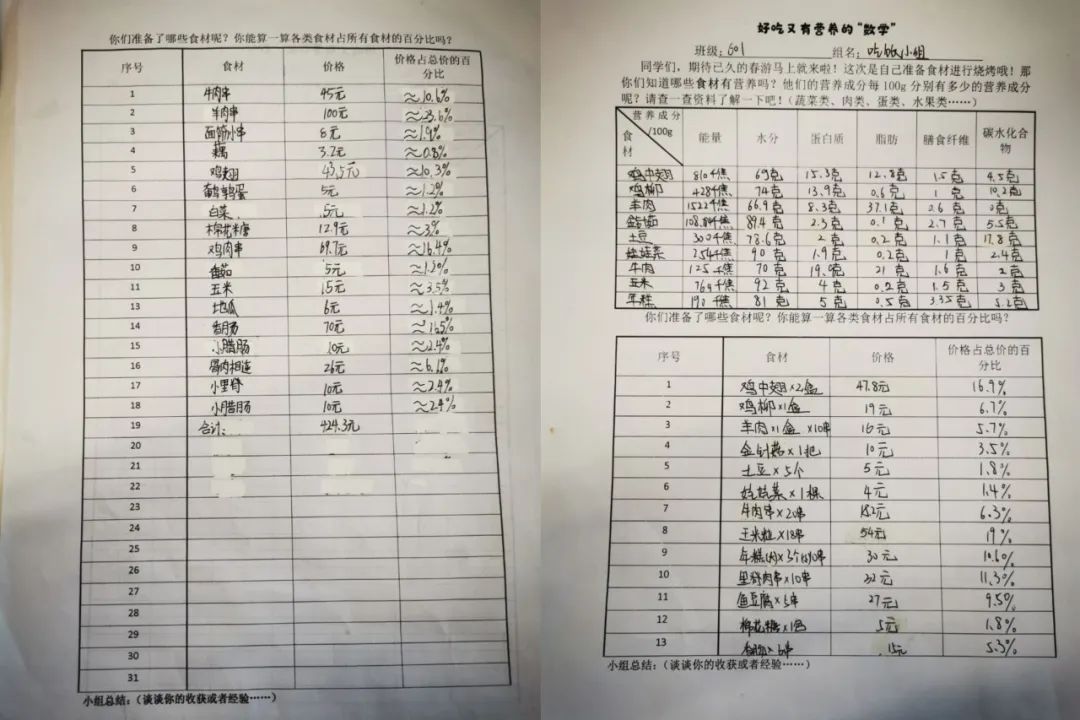 你们准备了哪些食材呢？你能算一算各类食材占所有食材的百分比吗？
序号 食材 价格 价格占总价的百分比
1 牛肉串 45元 ≈10.6%
2 羊肉串 100元 ≈23.6%
3 面筋小串 8元 ≈1.9%
4 藕 3.2元 ≈0.8%
5 鸡翅 43.5元 ≈10.3%
6 鹌鹑蛋 5元 ≈1.2%
7 白菜 5元 ≈1.2%
8 棉花糖 12.9元 ≈3%
9 鸡肉串 69.7元 ≈16.4%
10 番茄 5元 ≈1.2%
11 玉米 15元 ≈3.5%
13 地瓜 6元 ≈1.4%
14 香肠 70元 ≈16.5%
15 小腊肠 10元 ≈2.4%
16 骨肉相连 26元 ≈6.1%
17 小里脊 10元 ≈2.4%
18 小腊肠 10元 ≈2.4%
19 合计： 424.3元
20
21
22
23
24
25
26
27
28
29
30
31
小组总结：（谈谈你的收获或者经验……）
好吃又有营养的“数学”
班级：601 组名：吃饭小组
同学们，期待已久的春游马上就来啦！这次是自己准备食材进行烧烤哦！那
你们知道哪些食材有营养吗？他们的营养成分每 100g 分别有多少的营养成分
呢？请查一查资料了解一下吧！（蔬菜类、肉类、蛋类、水果类……）
营养成分/100g 食材 能量 水分 蛋白质 脂肪 膳食纤维 碳水化合物
鸡中翅 810千焦 69克 15.3克 12.8克 1.5克 4.5克
鸡柳 428千焦 74克 13.9克 0.6克 1克 10.2克
羊肉 1522千焦 66.9克 8.3克 37.1克 2.6克
金针菇 89.4克 2.3克 0.1克 2.7克 5.5克
土豆 300千焦 78.6克 2克 0.2克 1.1克 17.8克
娃娃菜 254千焦 90克 1.9克 0.2克 1克 2.4克
牛肉 125千焦 70克 21克 1.6克 2克
玉米 764千焦 92克 4克 0.2克 1.5克 3克
年糕 81克 5克 0.5克 3.35克 5.2克
你们准备了哪些食材呢？你能算一算各类食材占所有食材的百分比吗？
序号 食材 价格 价格占总价的百分比
1 鸡中翅×2盒 47.8元 16.9%
2 鸡柳×1盒 19元 6.7%
3 羊肉×1盒×10串 16元 5.7%
4 金针菇×1把 10元 3.5%
5 土豆×5个 5元 1.8%
6 娃娃菜×1棵 4元 1.4%
7 牛肉串×20串 6.3%
8 玉米粒×18串 54元 19%
9 30元 10.60%
10 里脊肉串×10串 32元 11.3%
11 鱼豆腐×5串 27元 9.50%
12 棉花糖×1包 5元 1.8%
13 15元 5.3%
小组总结：（谈谈你的收获或者经验……）